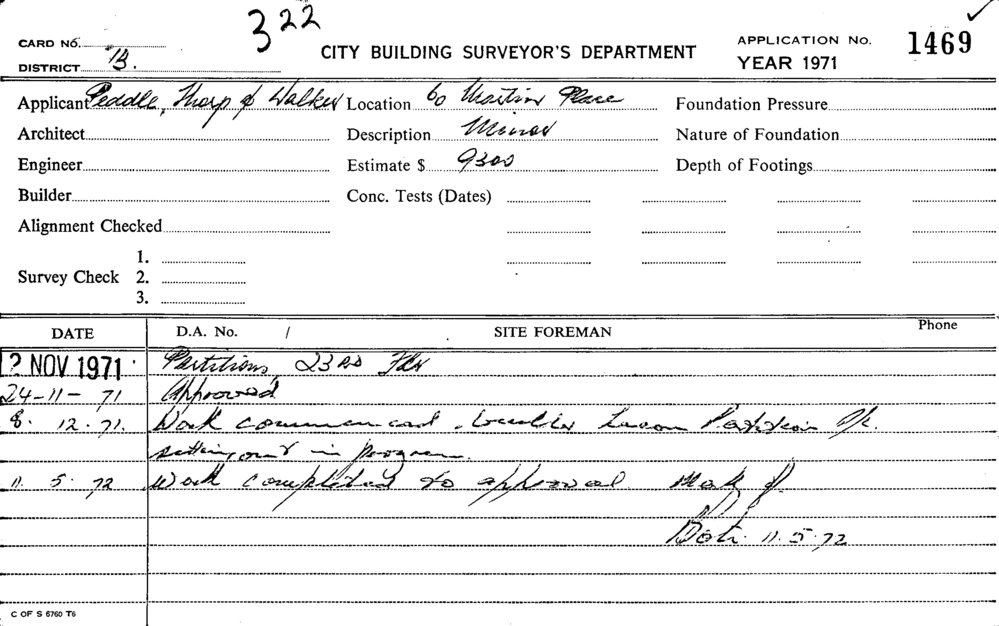 322
CARD No.
CITY BUILDING SURVEYOR'S DEPARTMENT
APPLICATION No. 1469
DISTRICT B.
YEAR 1971
Applicant Peddle, Thorp & Walker Location 60 Martin Place Foundation Pressure
Architect Description Minor Nature of Foundation
Engineer Estimate $ 9300 Depth of Footings
Builder Conc. Tests (Dates)
Alignment Checked
1.
Survey Check 2.
3.
DATE D.A. No. / SITE FOREMAN Phone
2 NOV 1971 Partitions, 23rd Flr
24-11-71 Approved
8. 12. 71. Work commenced. builder Partition P/L.
setting out in progress.
11. 5. 72 Work completed to approval
11.5.72
C OF S 6760 T6